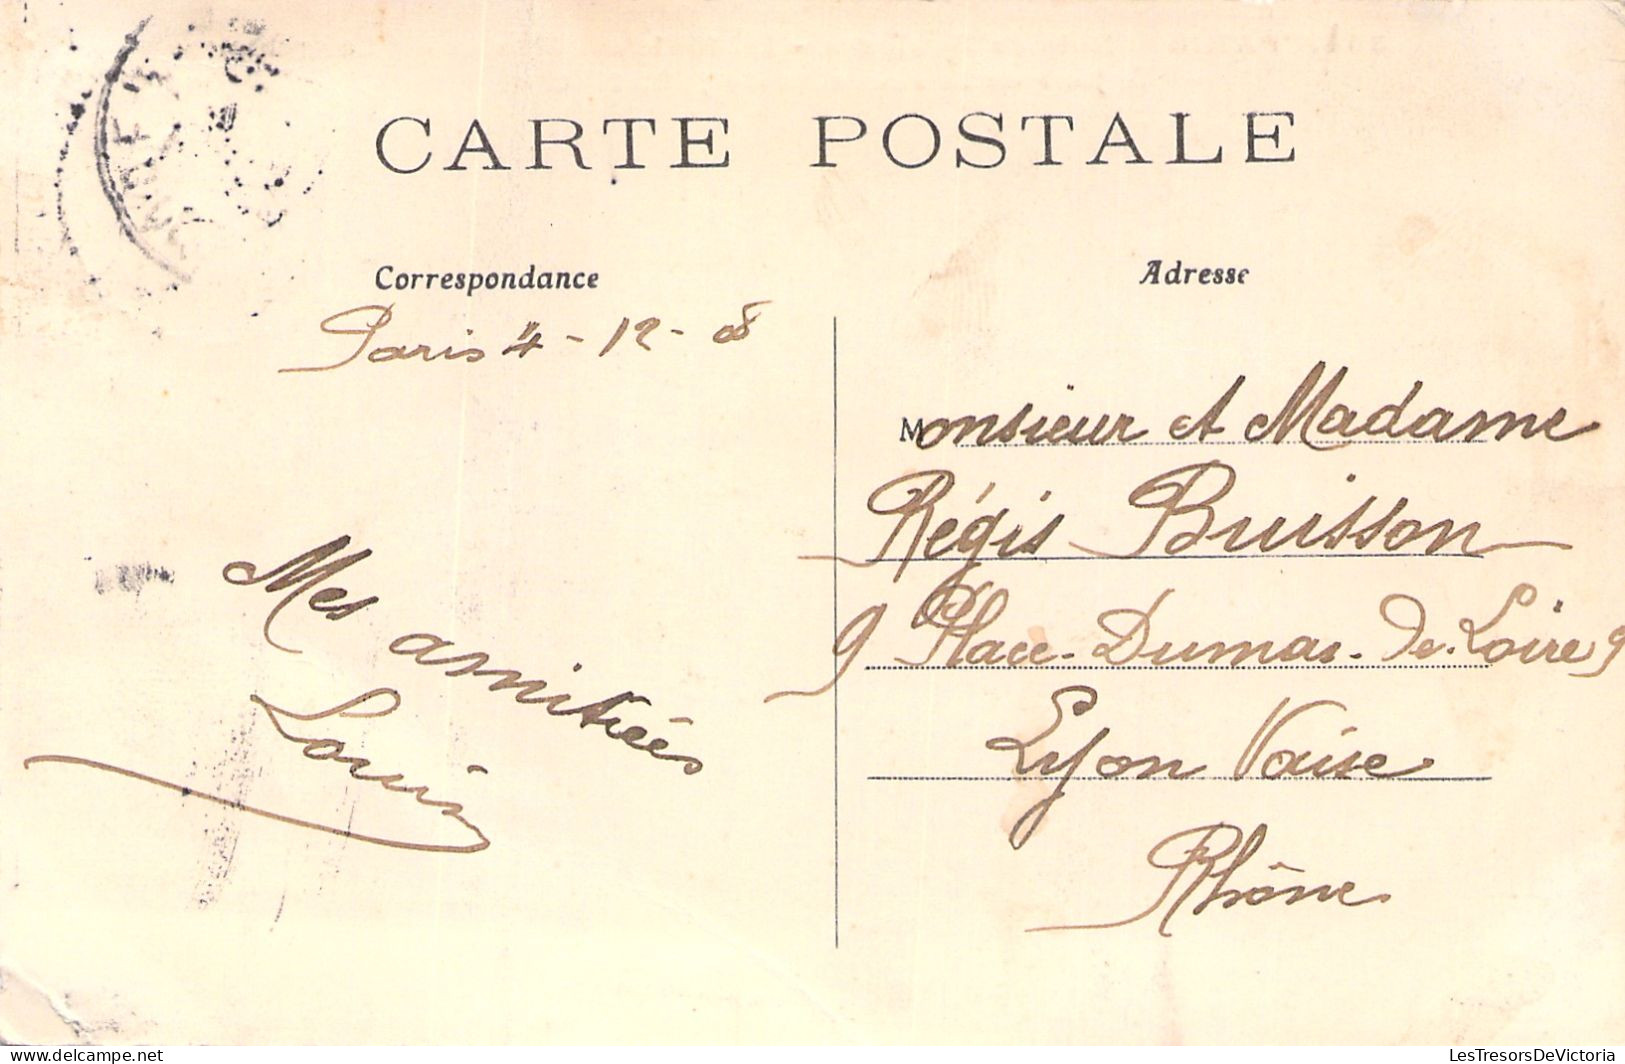 CARTE POSTALE
Correspondance
Adresse
Paris 4-12-8
Mes amitiées
Louis
Monsieur et Madame
Régis Buisson
9 Place-Dumas-De-Loire 9
Lyon Vaise
Rhône
delcampe.net
LesTresorsDeVictoria